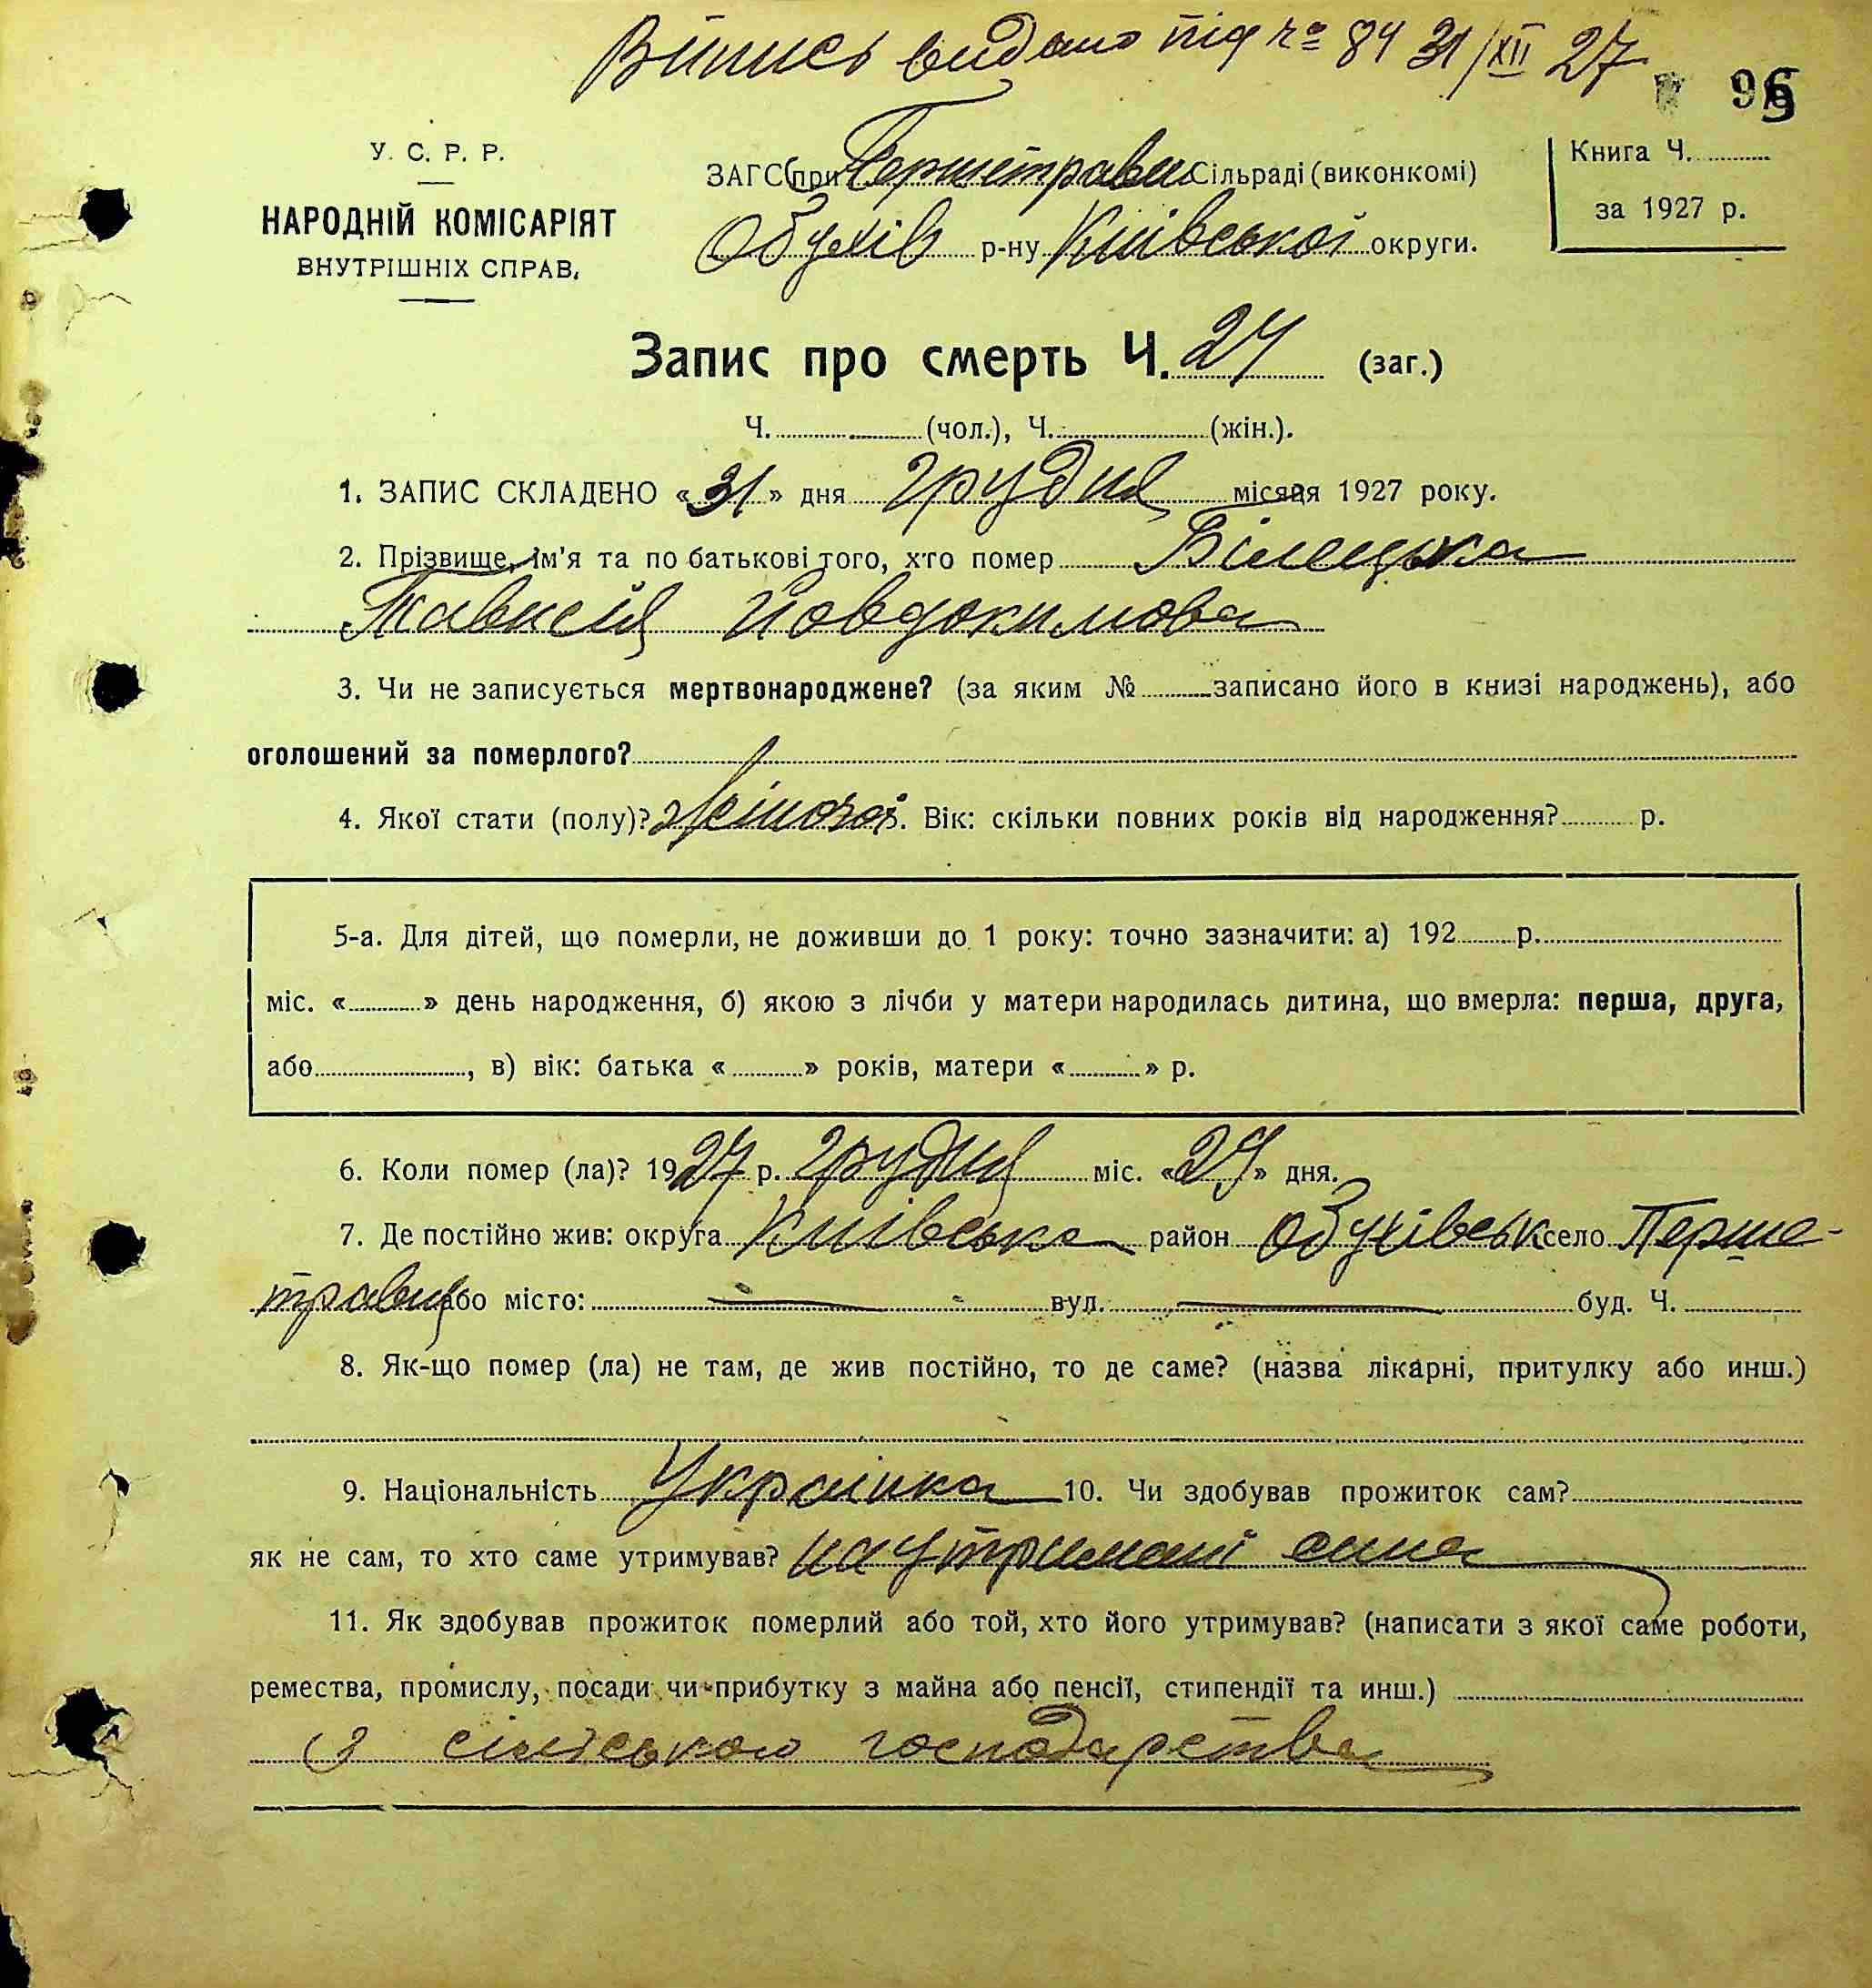 Випись видано під ч° 84 31/XII 27
96
У. С. Р. Р.
НАРОДНІЙ КОМІСАРІЯТ
ВНУТРІШНІХ СПРАВ.
ЗАГС (при Першетравен Сільраді (виконкомі)
Обухів р-ну Київської округи.
Книга Ч.
за 1927 р.
Запис про смерть Ч. 24 (заг.)
Ч. (чол.), Ч. (жін.).
1. ЗАПИС СКЛАДЕНО «31» дня грудня місяця 1927 року.
2. Прізвище, ім'я та по батькові того, хто помер Білецька
Тависія Йовдокимова
3. Чи не записується мертвонароджене? (за яким № записано його в книзі народжень), або
оголошений за померлого?
4. Якої стати (полу)? жіночої. Вік: скільки повних років від народження? р.
5-а. Для дітей, що померли, не доживши до 1 року: точно зазначити: а) 192 р.
міс. « » день народження, б) якою з лічби у матери народилась дитина, що вмерла: перша, друга,
або , в) вік: батька « » років, матери « » р.
6. Коли помер (ла)? 1927 р. грудня міс. «29» дня.
7. Де постійно жив: округа Київська район Обухівськ село Перше-
травен або місто: вул. буд. Ч.
8. Як-що помер (ла) не там, де жив постійно, то де саме? (назва лікарні, притулку або инш.)
9. Національність Українка 10. Чи здобував прожиток сам?
як не сам, то хто саме утримував? на утримані сина
11. Як здобував прожиток померлий або той, хто його утримував? (написати з якої саме роботи,
ремества, промислу, посади чи прибутку з майна або пенсії, стипендії та инш.)
з сільського господарства